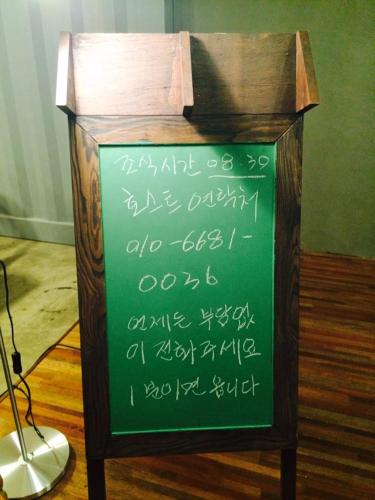 조식시간 08:30
호스트 연락처
010-6681-
0036
언제든 부담없
이 전화주세요
1분이면 옵니다